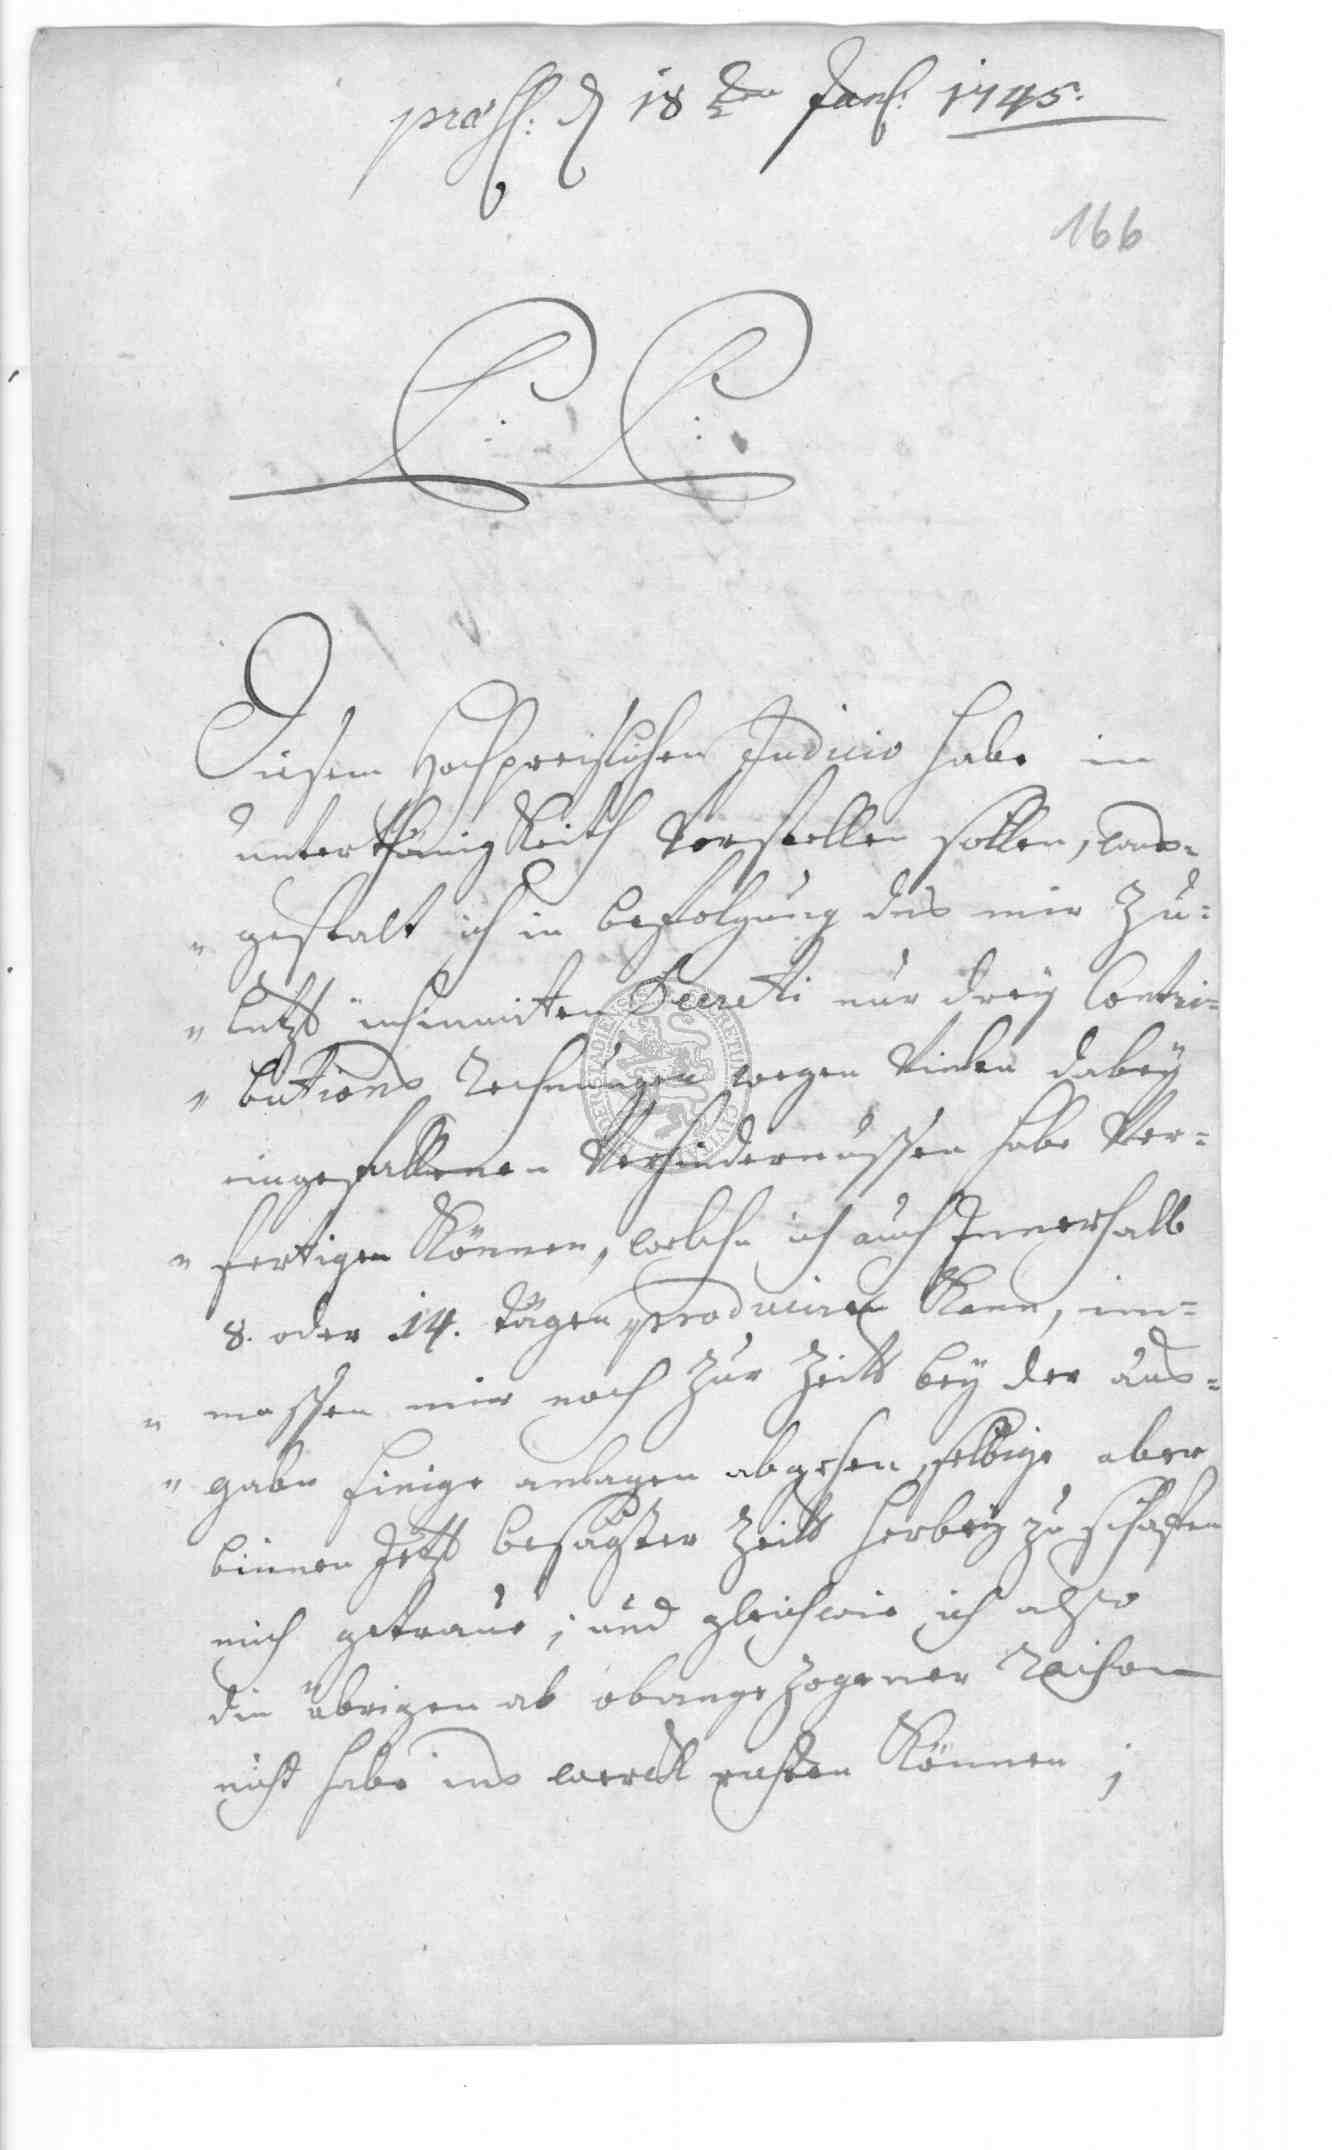 præs: d 18ten Jan: 1745.
166
L: L:
Diesem Hochpreißlichen Judicio habe in
unterthänigkeith Vorstellen sollen, was-
"gestalt ich in befolgung des mir Zu-
"letzt insinuirten Decreti nur drey Contri-
"butions Rechnungen wegen Vielen dabey
eingefallenen Verhindernussen habe Ver-
"fertigen Können, welche ich auch Innerhalb
8. oder 14. tägen produciren Kann, im-
"massen mir noch Zur Zeitt bey der aus-
"gabe Einige anlagen abgehen, selbige aber
binnen Jetzt besagter Zeitt herbey zu schaffen
mich getraue; und gleichwie ich also
die übrigen ab obangezogener Raison
nicht habe ins werck richten Können;